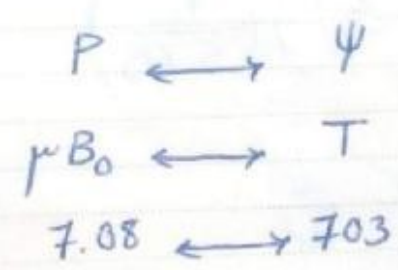 P ↔ Ψ
μB₀ ↔ T
7.08 ↔ 703